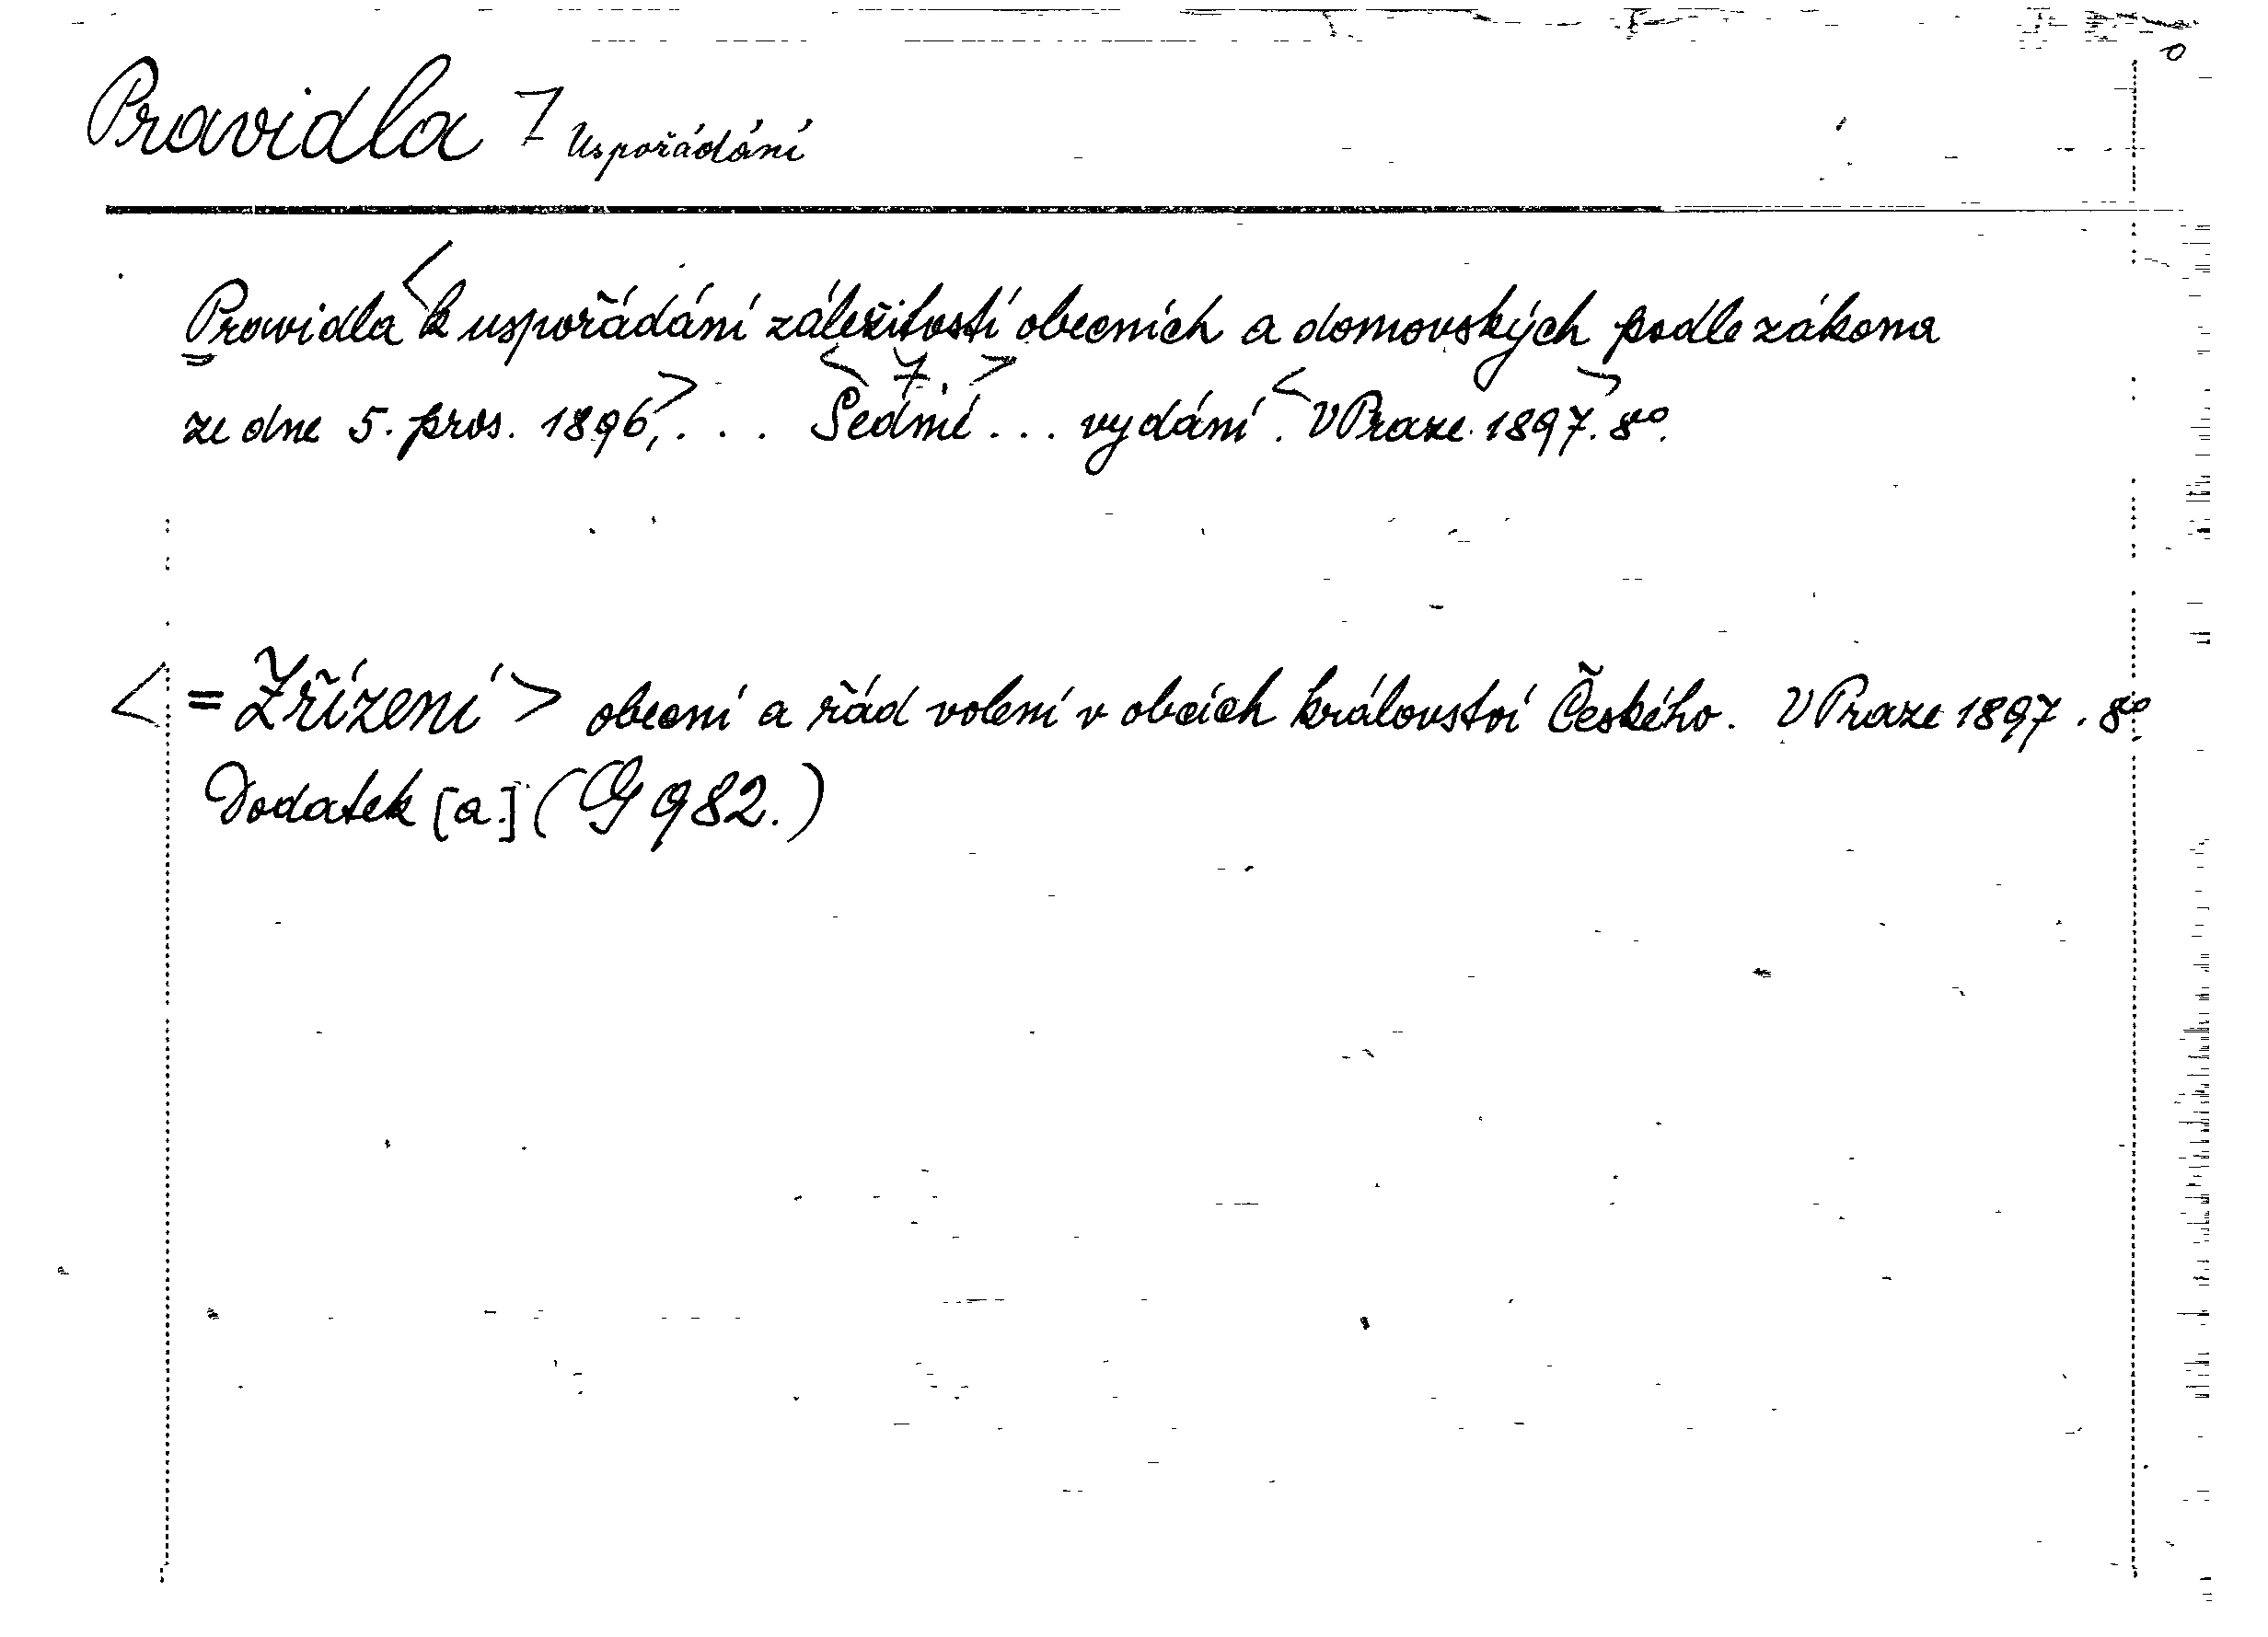 Pravidla 7 Uspořádání
Pravidla <k uspořádání záležitostí obecních a domovských podle zákona
< 7. >
ze dne 5. pros. 1896,> . . . Sedmé ... vydání. <V Praze. 1897.> 8º.
< = Zřízení > obecní a řád volení v obcích království Českého. V Praze 1897. 8º
Dodatek [a.] (G 982.)